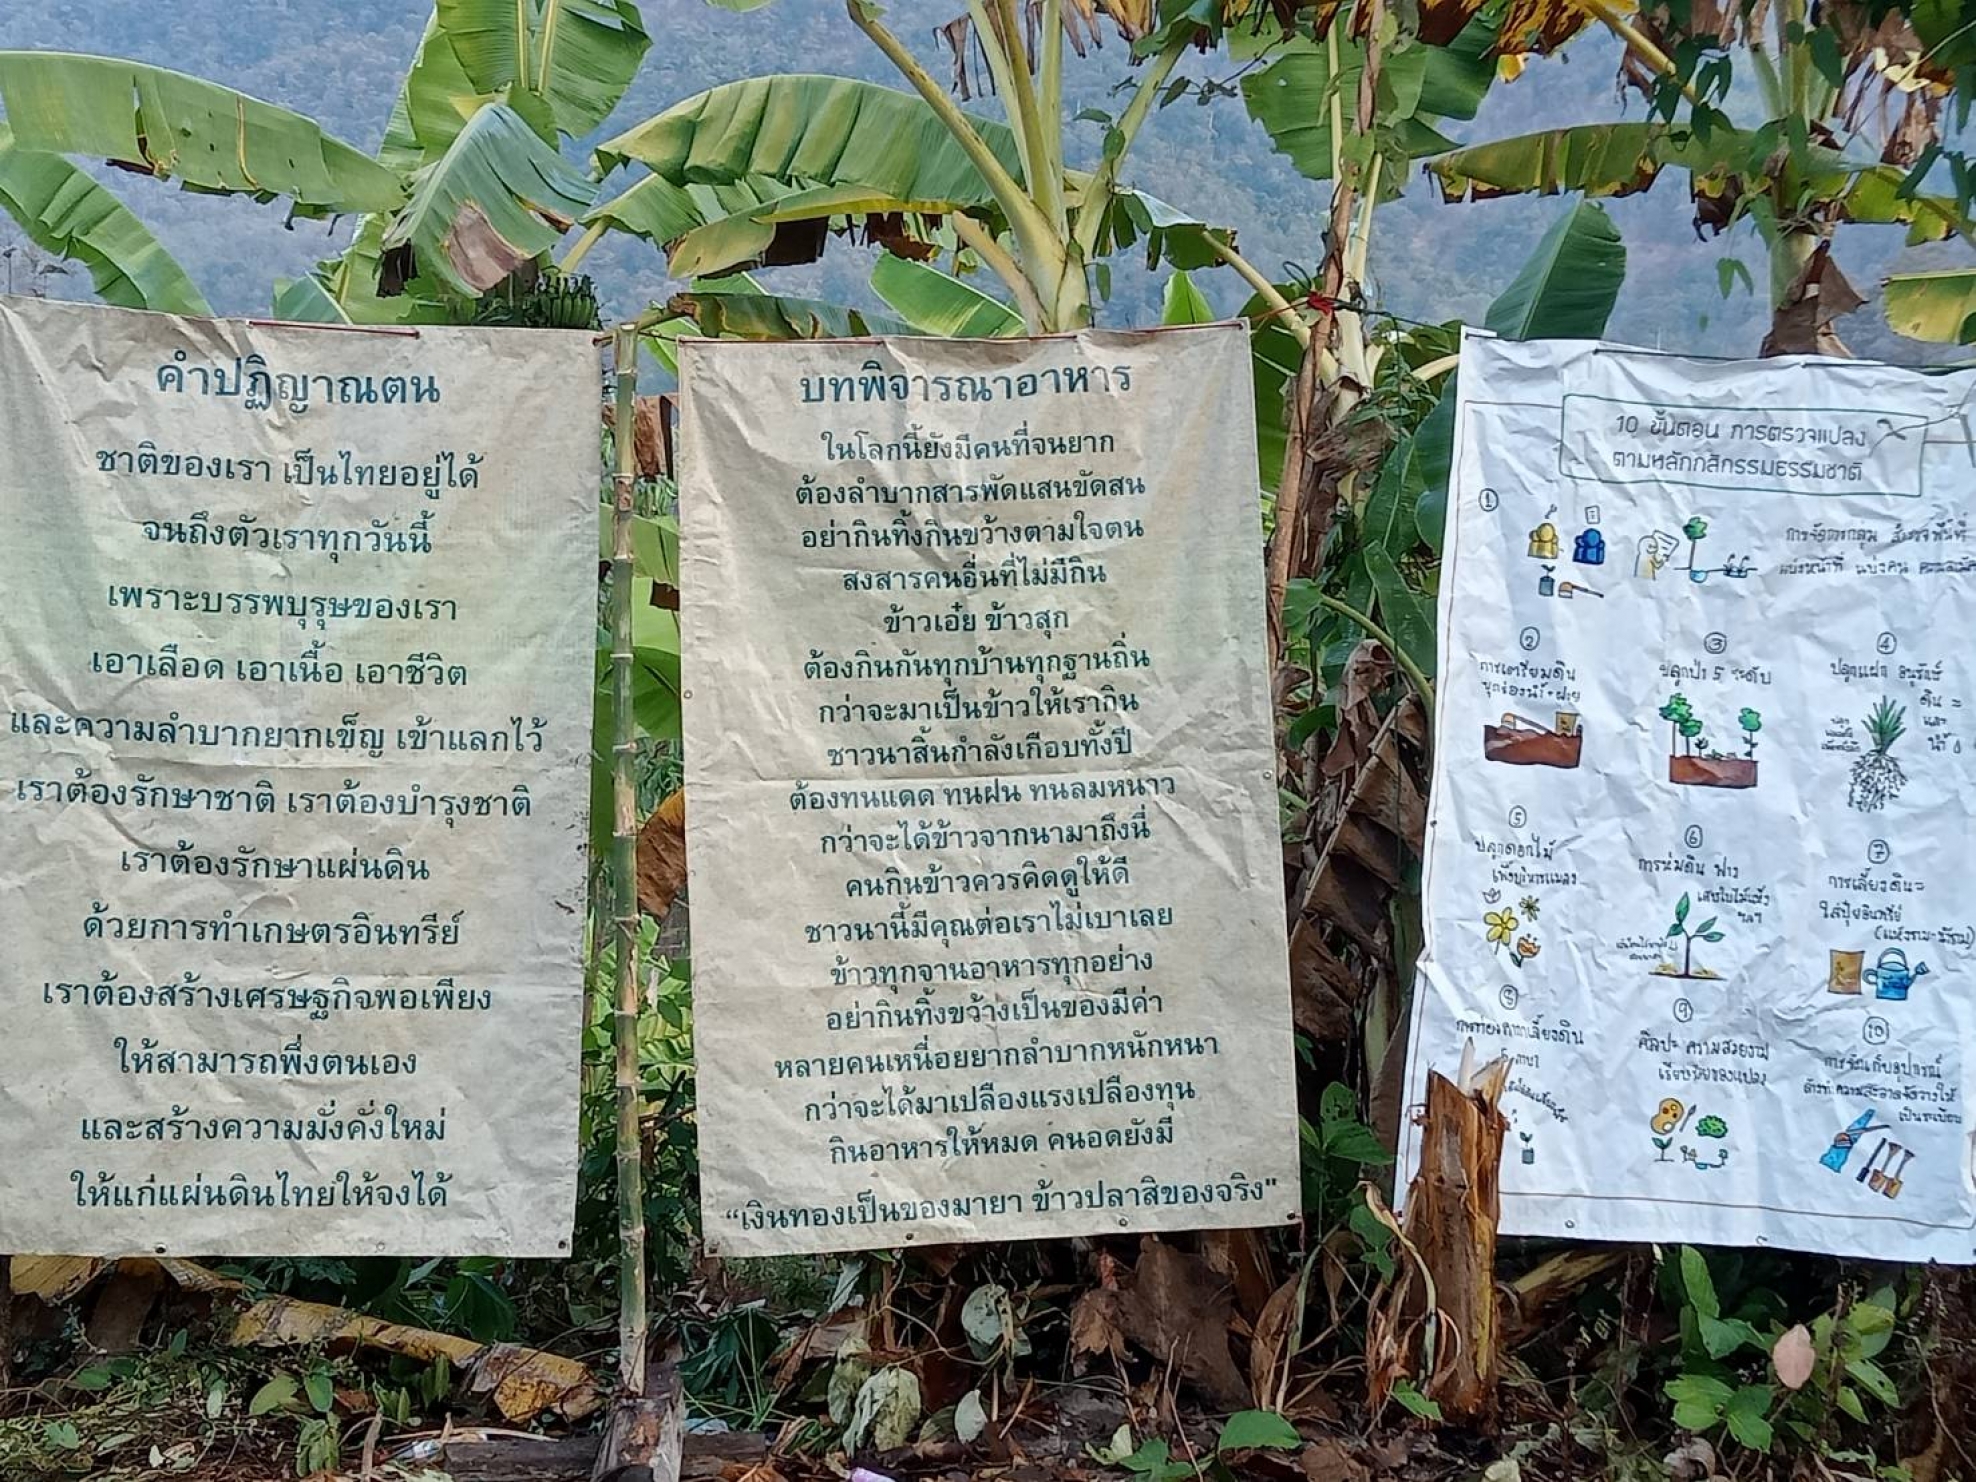 คำปฏิญาณตน
ชาติของเรา เป็นไทยอยู่ได้
จนถึงตัวเราทุกวันนี้
เพราะบรรพบุรุษของเรา
เอาเลือด เอาเนื้อ เอาชีวิต
และความลำบากยากเข็ญ เข้าแลกไว้
เราต้องรักษาชาติ เราต้องบำรุงชาติ
เราต้องรักษาแผ่นดิน
ด้วยการทำเกษตรอินทรีย์
เราต้องสร้างเศรษฐกิจพอเพียง
ให้สามารถพึ่งตนเอง
และสร้างความมั่งคั่งใหม่
ให้แก่แผ่นดินไทยให้จงได้
บทพิจารณาอาหาร
ในโลกนี้ยังมีคนที่จนยาก
ต้องลำบากสารพัดแสนขัดสน
อย่ากินทิ้งกินขว้างตามใจตน
สงสารคนอื่นที่ไม่มีกิน
ข้าวเอ๋ย ข้าวสุก
ต้องกินกันทุกบ้านทุกฐานถิ่น
กว่าจะมาเป็นข้าวให้เรากิน
ชาวนาสิ้นกำลังเกือบทั้งปี
ต้องทนแดด ทนฝน ทนลมหนาว
กว่าจะได้ข้าวจากนามาถึงนี่
คนกินข้าวควรคิดดูให้ดี
ชาวนานี้มีคุณต่อเราไม่เบาเลย
ข้าวทุกจานอาหารทุกอย่าง
อย่ากินทิ้งขว้างเป็นของมีค่า
หลายคนเหนื่อยยากลำบากหนักหนา
กว่าจะได้มาเปลืองแรงเปลืองทุน
กินอาหารให้หมด คนอดยังมี
“เงินทองเป็นของมายา ข้าวปลาสิของจริง"
10 ขั้นตอน การตรวจแปลง
ตามหลักกสิกรรมธรรมชาติ
1
สำรวจพื้นที่
แบ่งหน้าที่ แบ่งคน
2
การเตรียมดิน
3
ปลูกป่า 5 ระดับ
4
ปลูกแฝก อนุรักษ์
ดิน
และ
น้ำ
5
ปลูกดอกไม้
6
การห่มดิน ฟาง
เศษใบไม้แห้ง
ฯลฯ
7
การเลี้ยงดิน
ใส่ปุ๋ยอินทรีย์
(แห้งชาม-น้ำชาม)
8
9
ศิลปะ ความสวยงาม
เรียบร้อยของแปลง
10
การจัดเก็บอุปกรณ์
ล้างทำความสะอาดจัดวางให้
เป็นระเบียบ